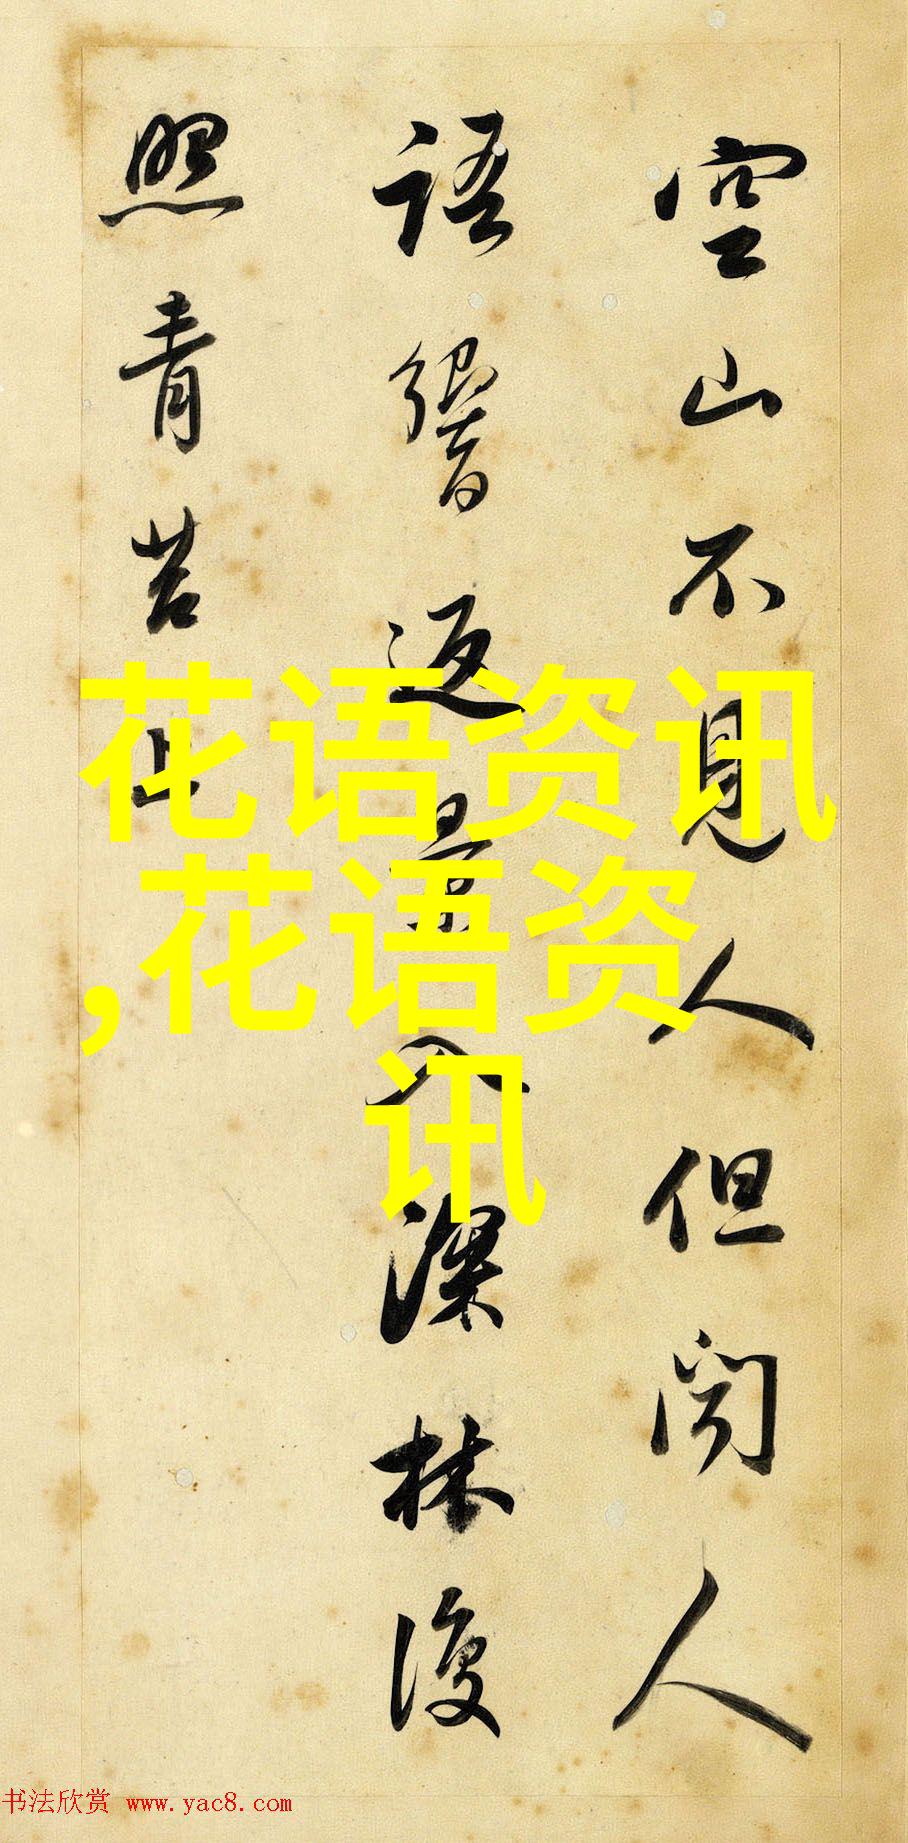 空山不見人但聞人
語響返景入深林復
照青苔上
花语资讯
,花语资
讯
书法欣赏 www.yac8.com